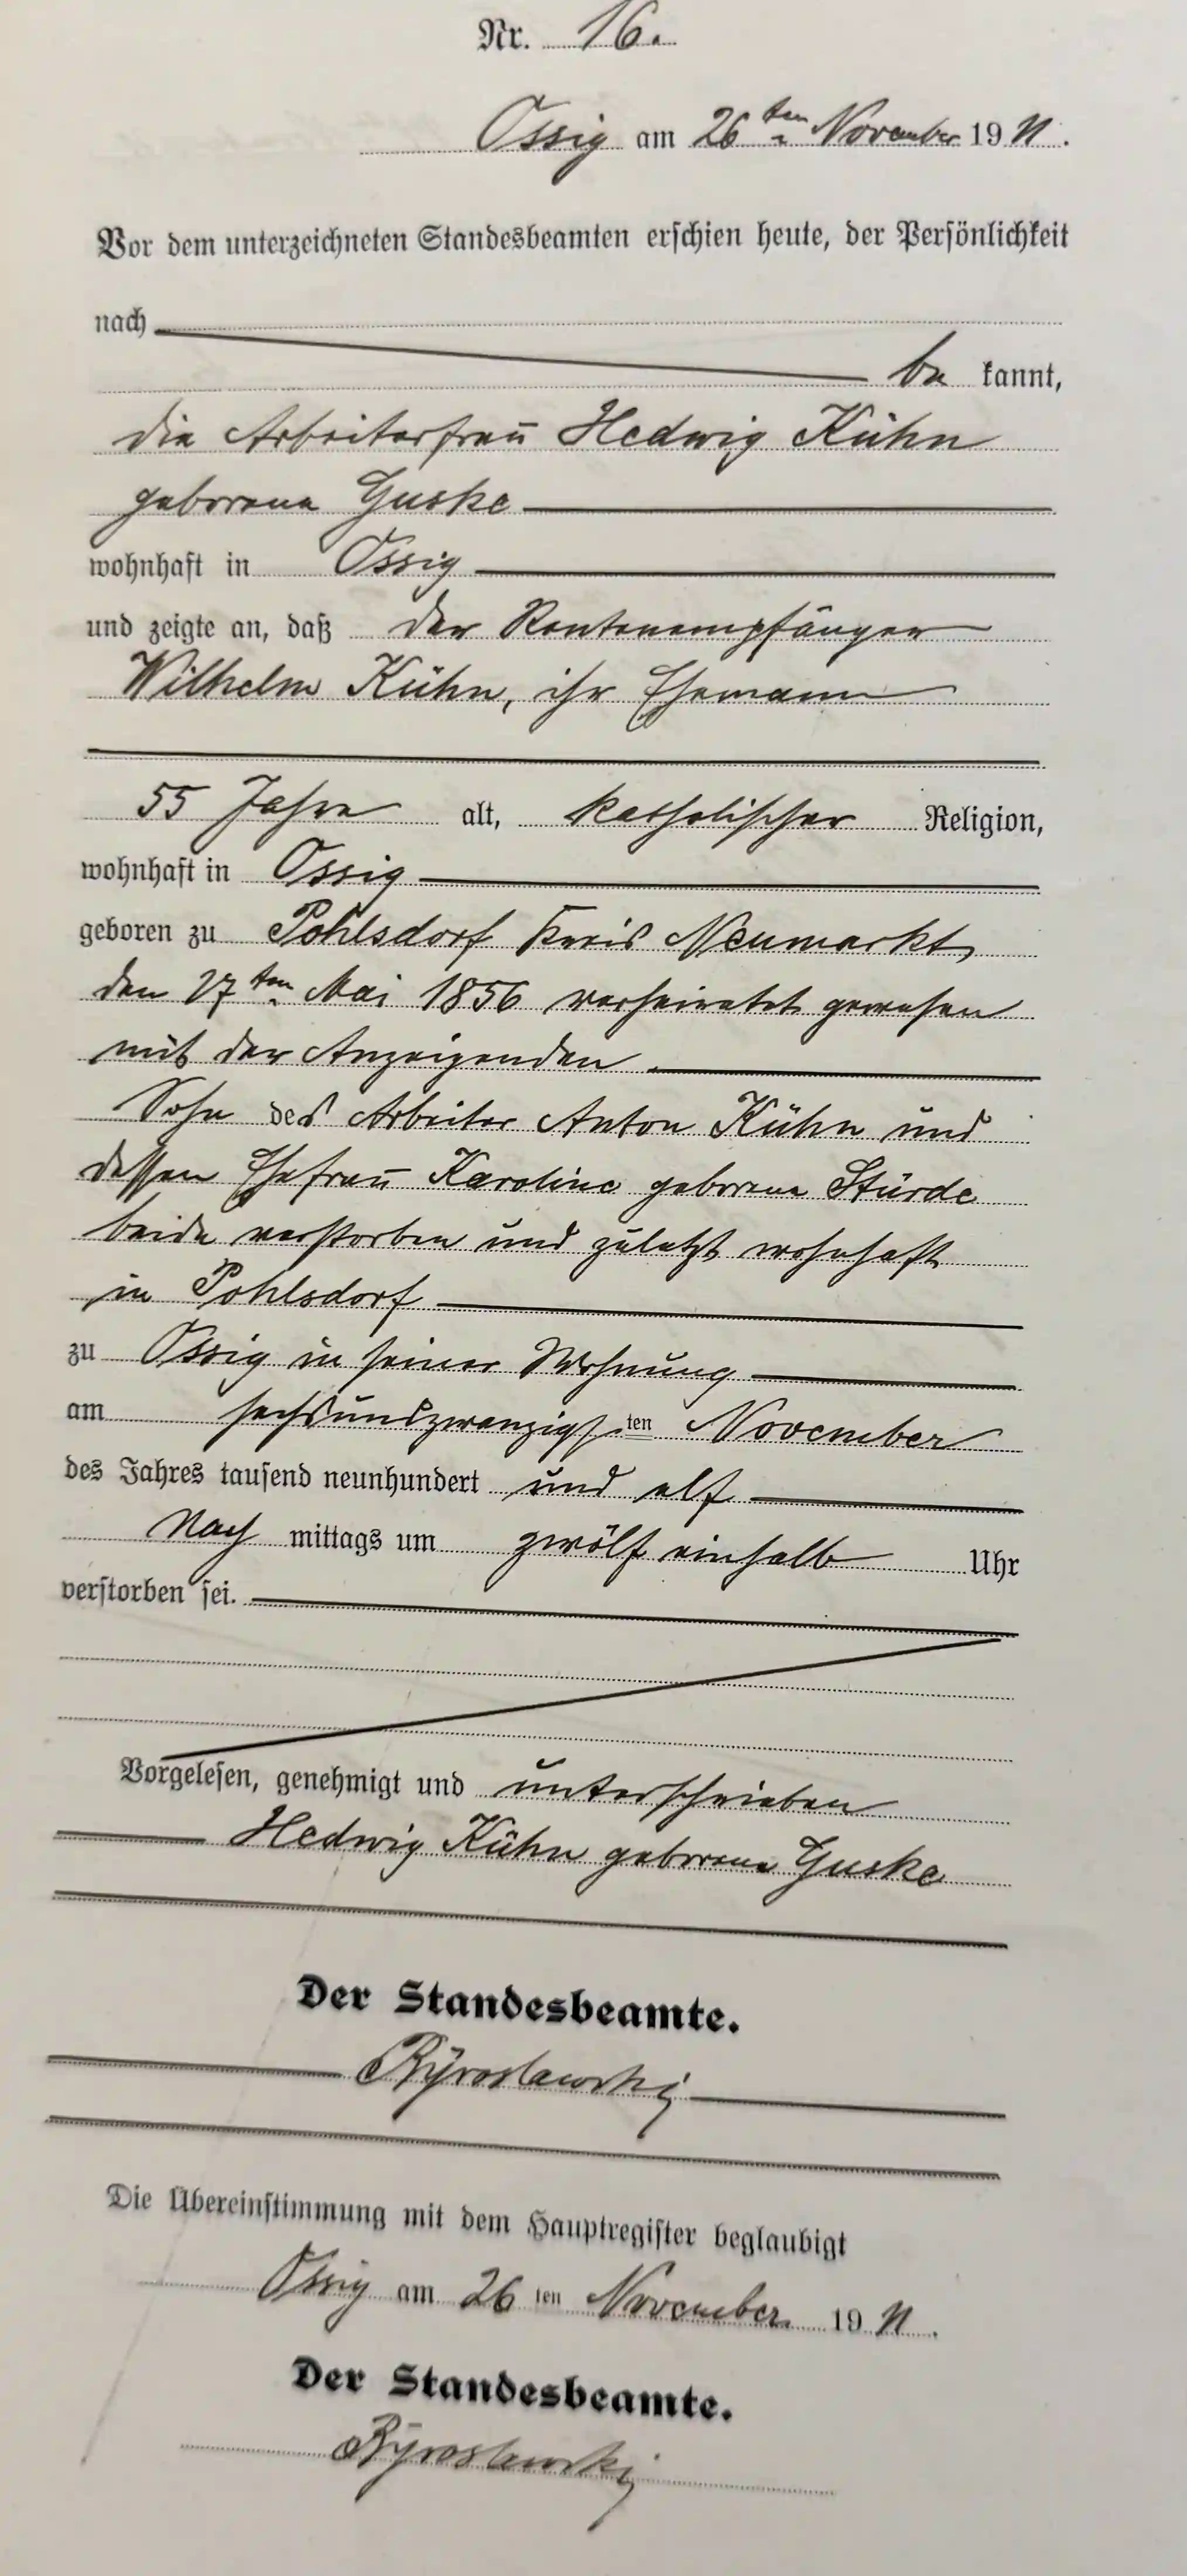 Nr. 16.
Ossig am 26ten November 1911.
Vor dem unterzeichneten Standesbeamten erschien heute, der Persönlichkeit
nach
be kannt,
die Arbeiterfrau Hedwig Kühn
geborene Guske
wohnhaft in Ossig
und zeigte an, daß der Rentenempfänger
Wilhelm Kühn, ihr Ehemann
55 Jahre alt, katholischer Religion,
wohnhaft in Ossig
geboren zu Pohlsdorf Kreis Neumarkt,
den 17ten Mai 1856 verheiratet gewesen
mit der Anzeigenden.
Sohn des Arbeiter Anton Kühn und
dessen Ehefrau Karoline geborene Stürde
beide verstorben und zuletzt wohnhaft
in Pohlsdorf
zu Ossig in seiner Wohnung
am sechsundzwanzigsten November
des Jahres tausend neunhundert und elf
Nach mittags um zwölf einhalb Uhr
verstorben sei.
Vorgelesen, genehmigt und unterschrieben
Hedwig Kühn geborene Guske
Der Standesbeamte.
Die Übereinstimmung mit dem Hauptregister beglaubigt
Ossig am 26ten November 1911.
Der Standesbeamte.